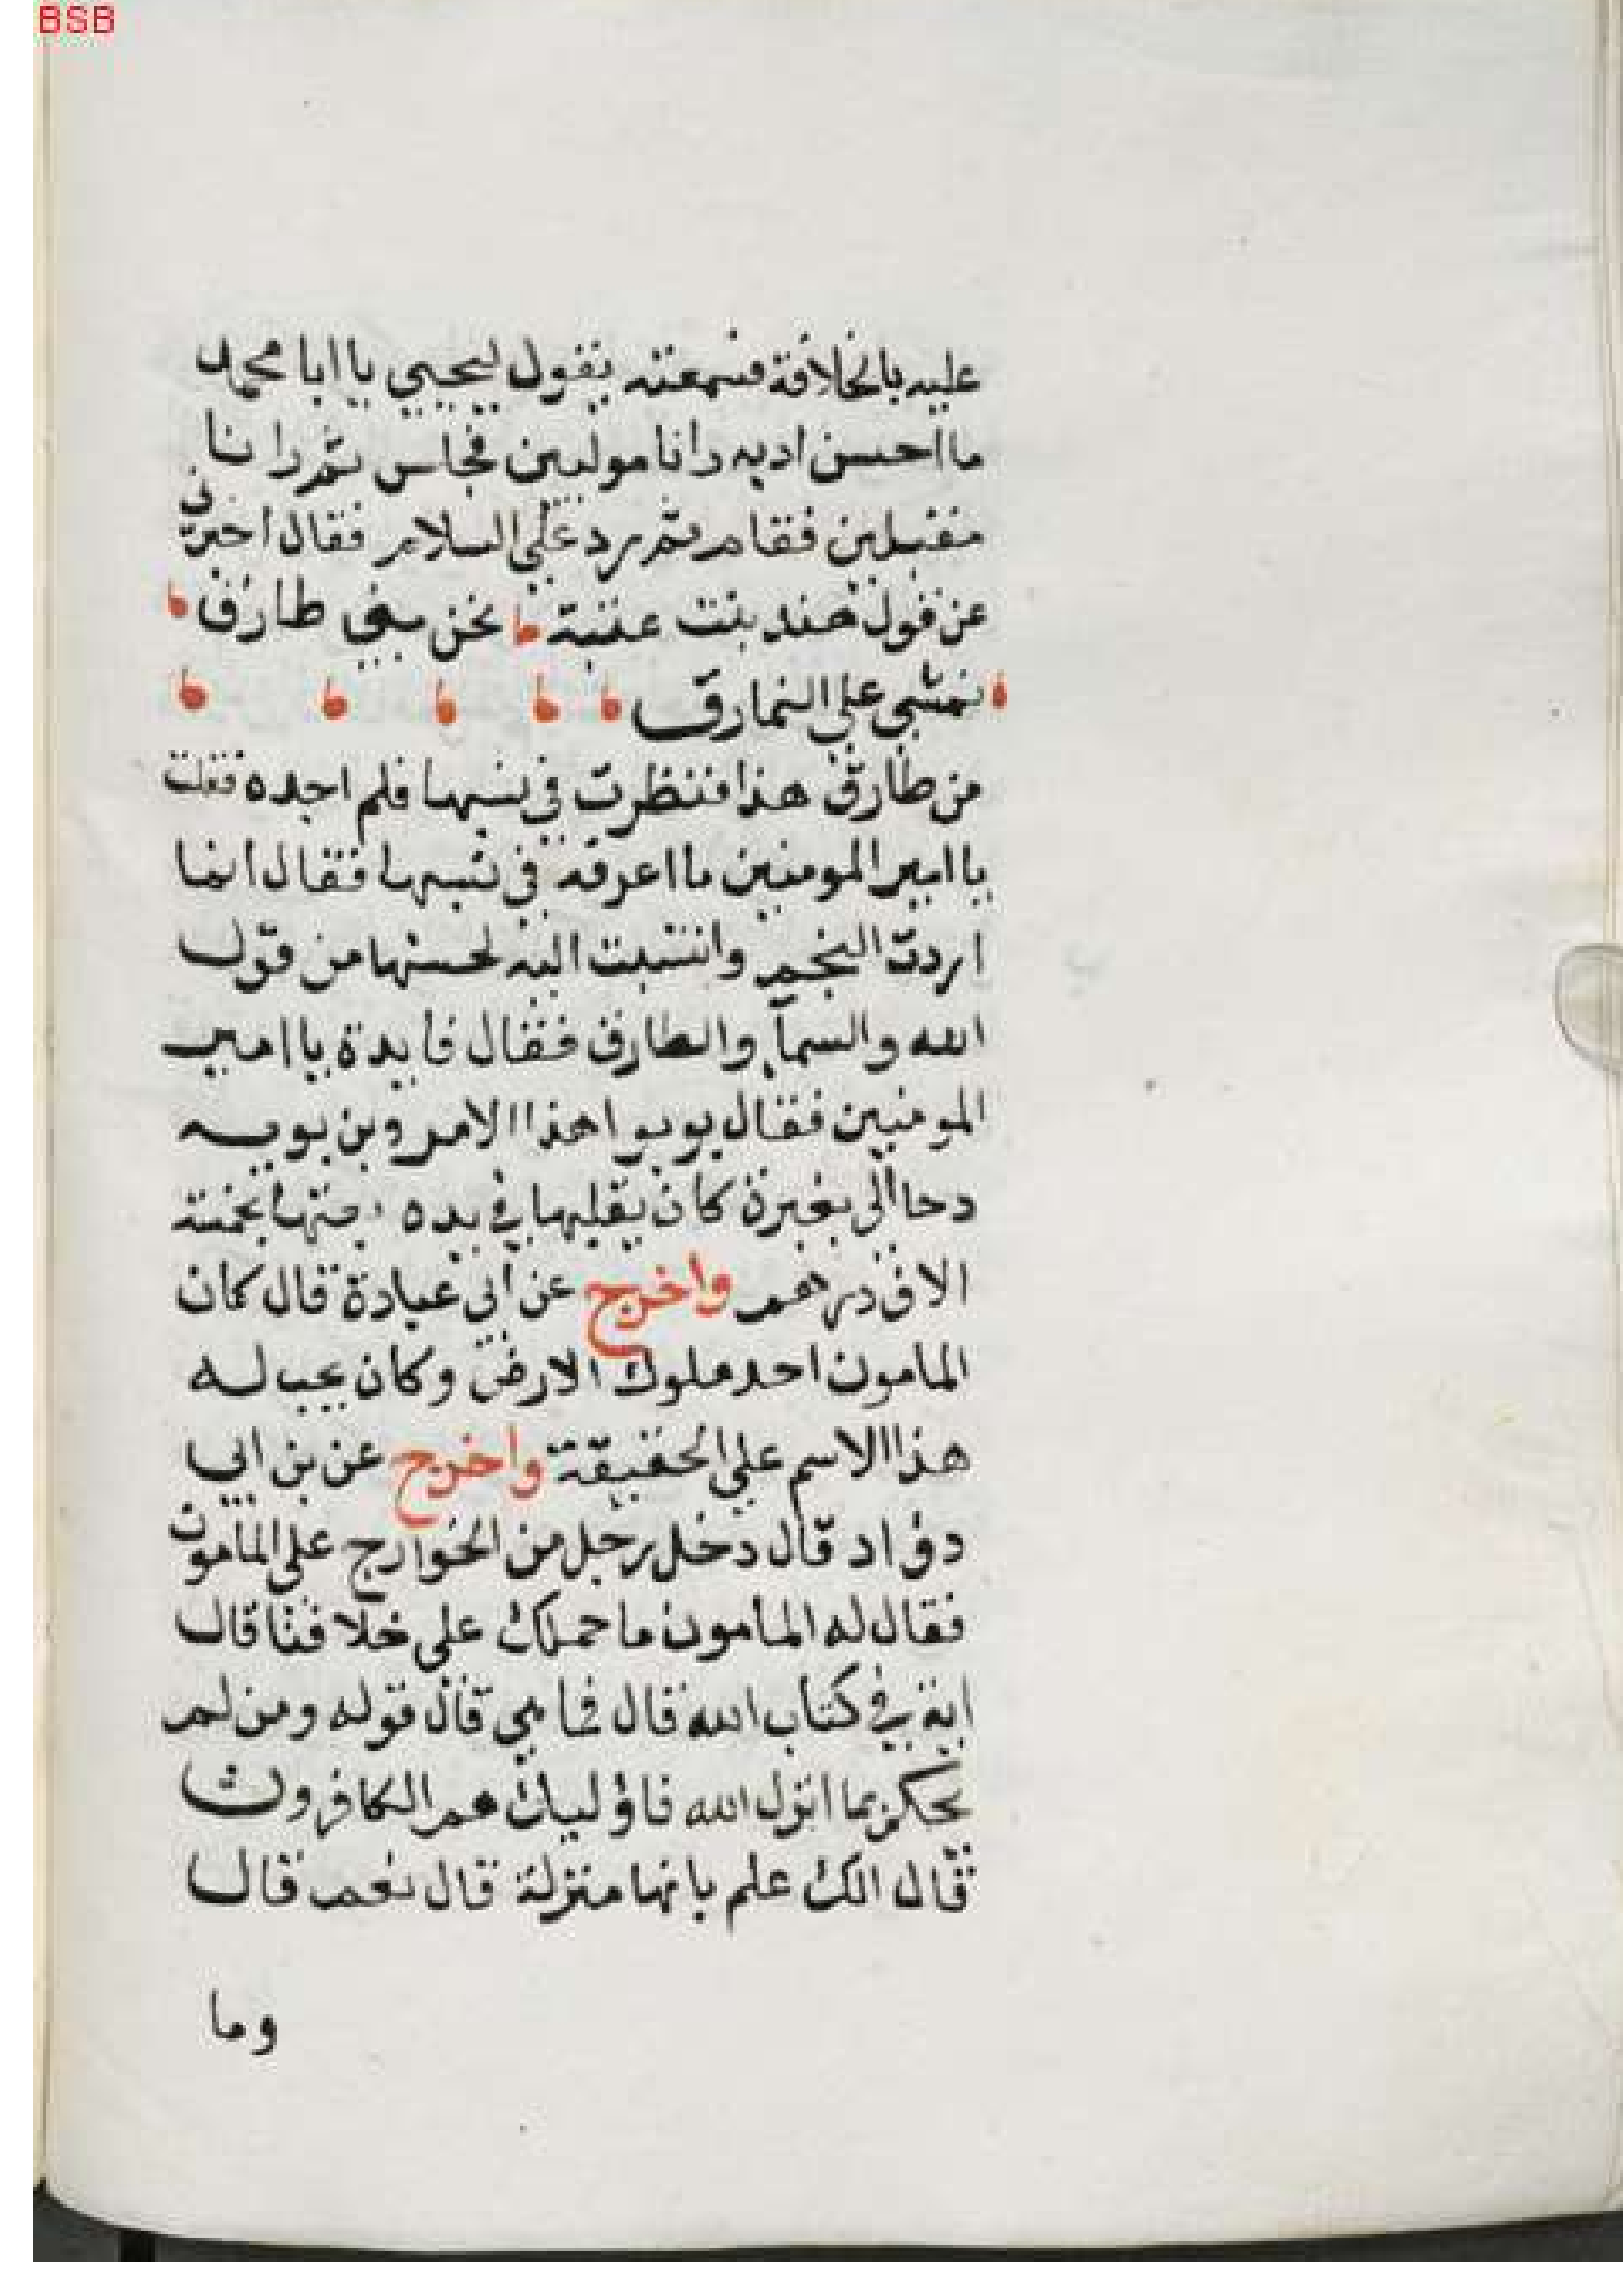 BSB
عليه بالخلافة فسمعته يقول ليحيي يا ابا محمد
ما احسن ادبه رانا موليين فجلس ثم رانا
مقبلين فقام ثم رد علي السلام فقال اخبرني
عن قول هند بنت عتبة نحن بني طارق
نمشي علي النمارق
من طارق هذا فنظرت في نسبها فلم اجده فقلت
يا امير المومنين ما اعرفه في نسبها فقال انما
اردت النجم وانتسبت اليه لحسنها من قول
الله والسمآ والطارق فقلت فايدة يا امير
المومنين فقال بوبوا هذا الامر وبن بوبه
دحا الي بغبرة كان يقلبها في يده بخمسة
الاف درهم واخرج عن ابي عبادة قال كان
المامون احد ملوك الارض وكان يجب له
هذا الاسم علي الحقيقة واخرج عن بن ابي
دؤاد قال دخل رجل من الخوارج علي المامون
فقال له المامون ما حملك علي خلافنا قال
اية في كتاب الله قال فما هي قال قوله ومن لم
يحكم بما انزل الله فاؤليك هم الكافرون
قال الك علم بانها منزلة قال نعم قال
وما